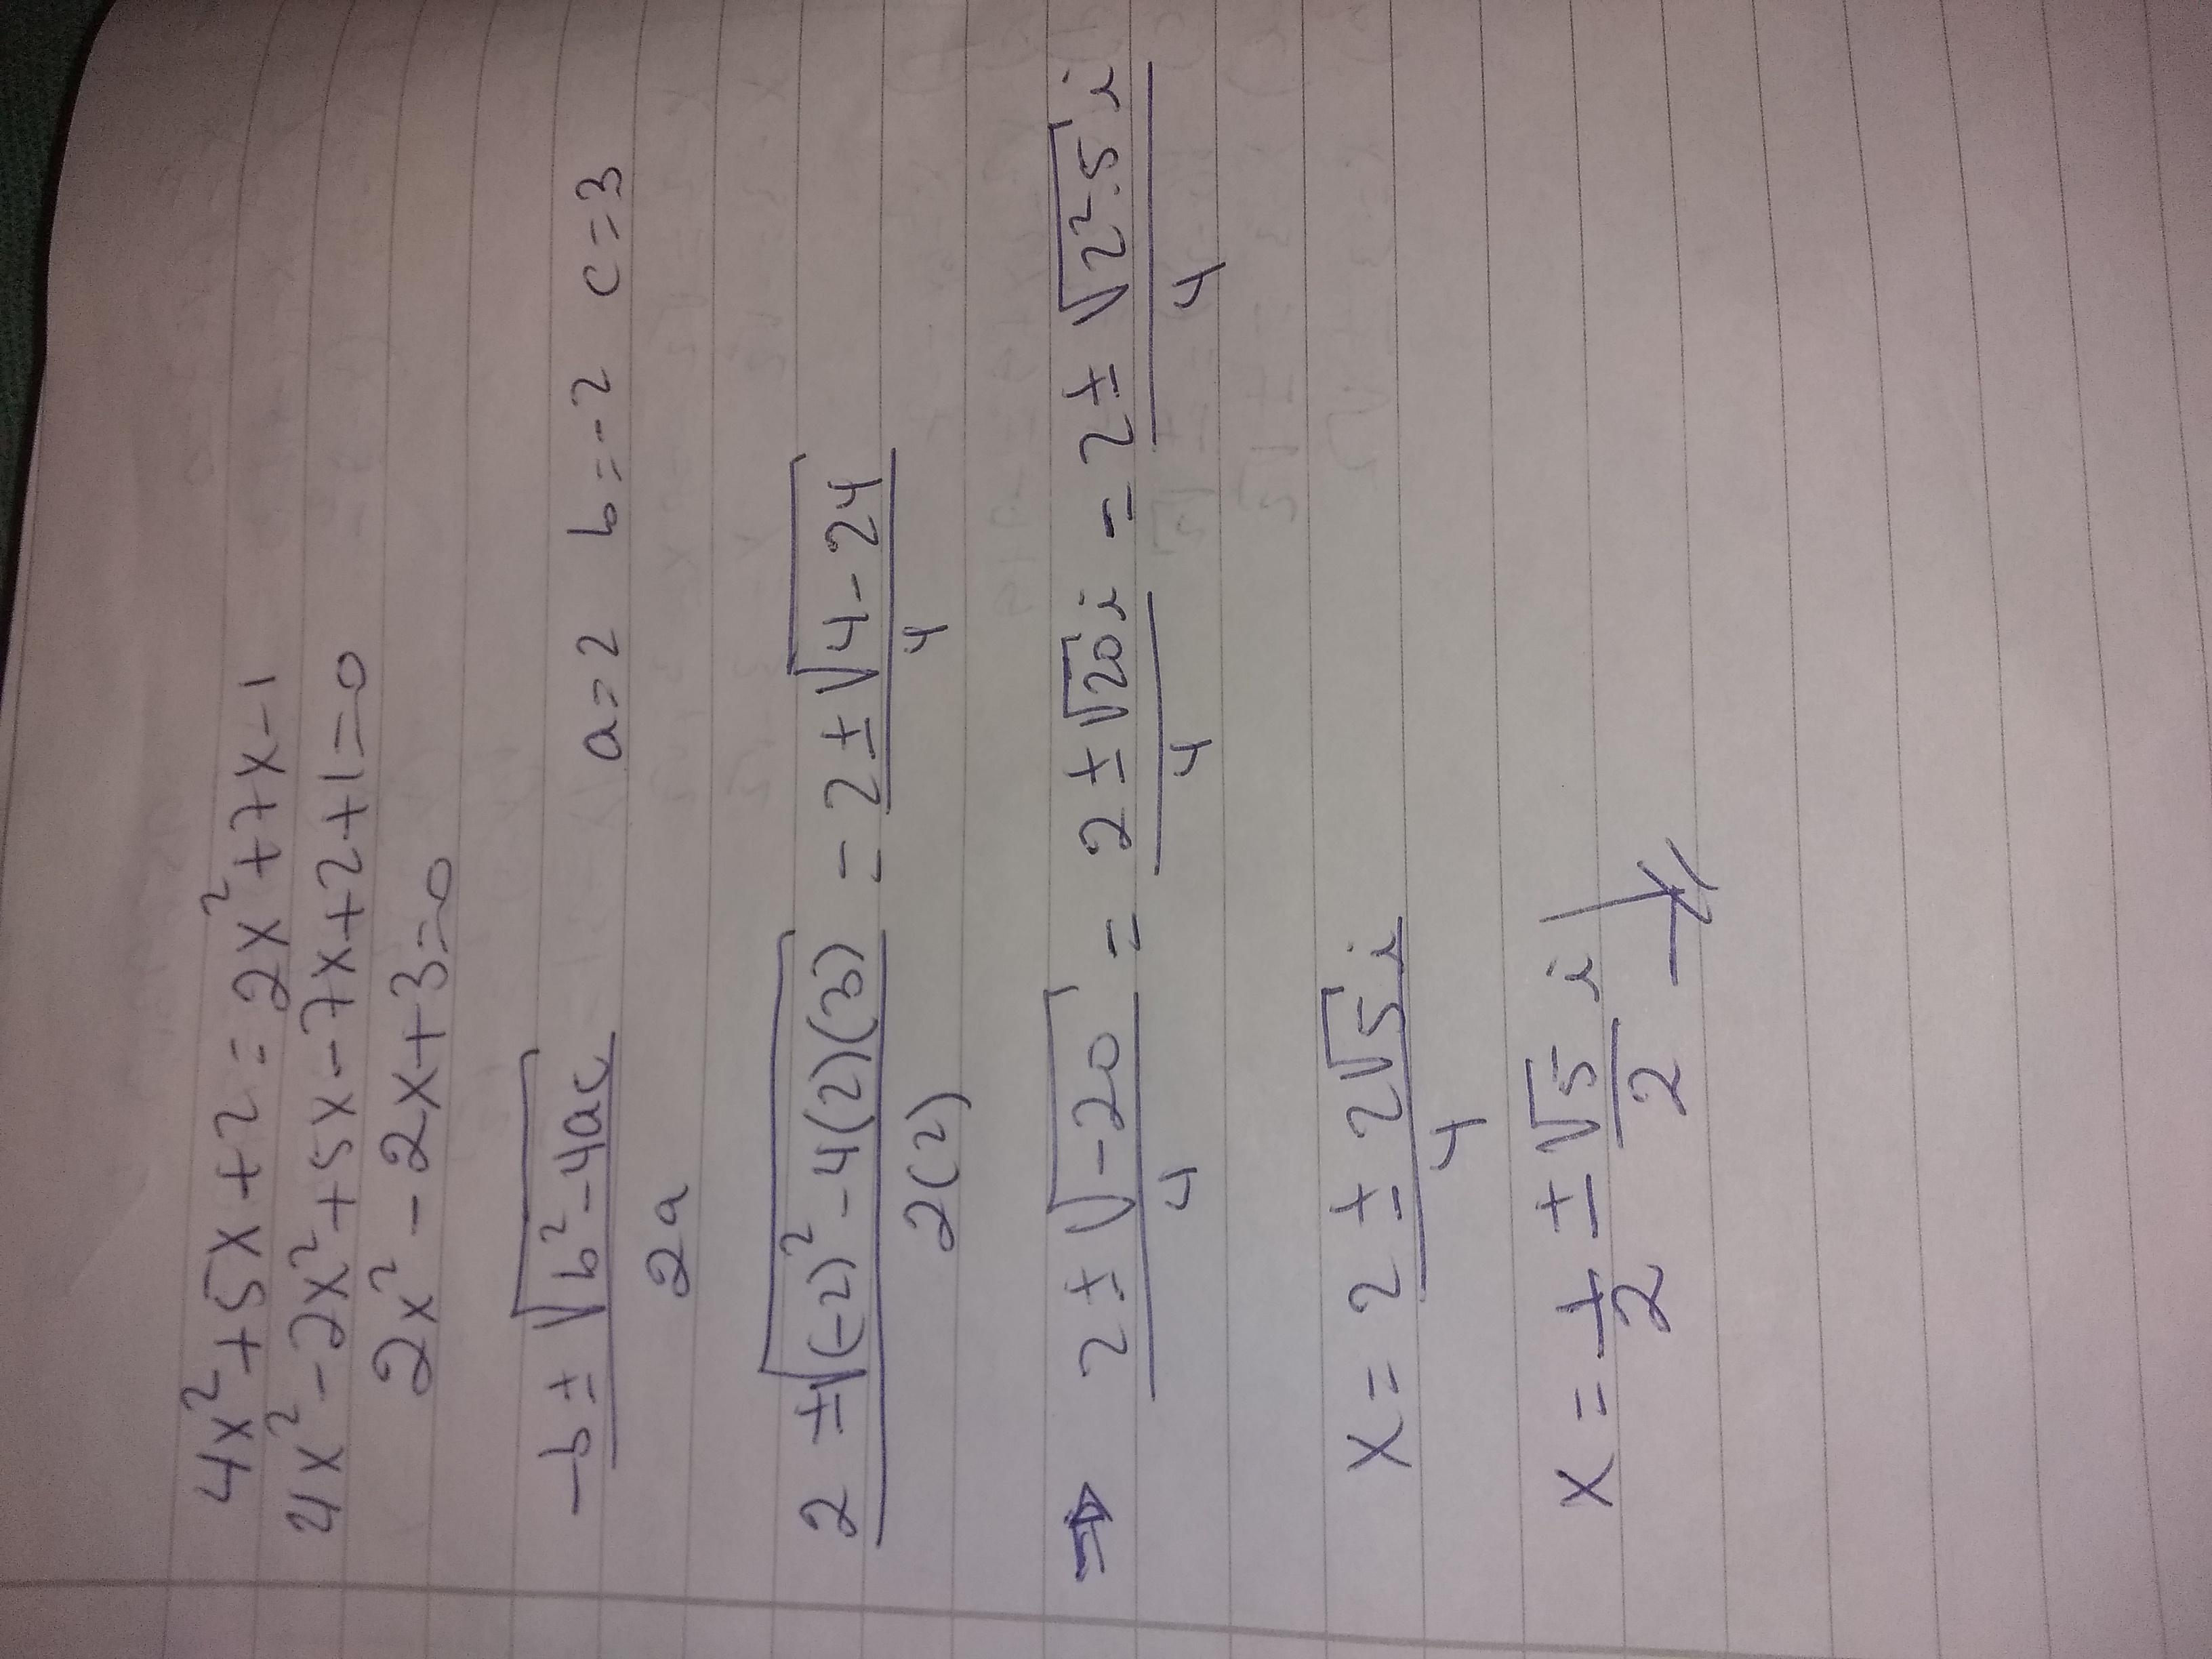 4x² + 5x + 2 = 2x² + 7x - 1
4x² - 2x² + 5x - 7x + 2 + 1 = 0
2x² - 2x + 3 = 0
-b ± √(b² - 4ac) / 2a    a = 2  b = -2  c = 3
2 ± √((-2)² - 4(2)(3)) / 2(2) = 2 ± √(4 - 24) / 4
⇒ 2 ± √(-20) / 4 = 2 ± √20 i / 4 = 2 ± √(2²·5) i / 4
x = 2 ± 2√5 i / 4
x = 1/2 ± √5/2 i